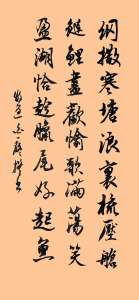 網撒寒塘浪裏梳壓艙
鰱鯉盡歡愉歌滿蕩笑
盈湖恰趁臘尾好起魚